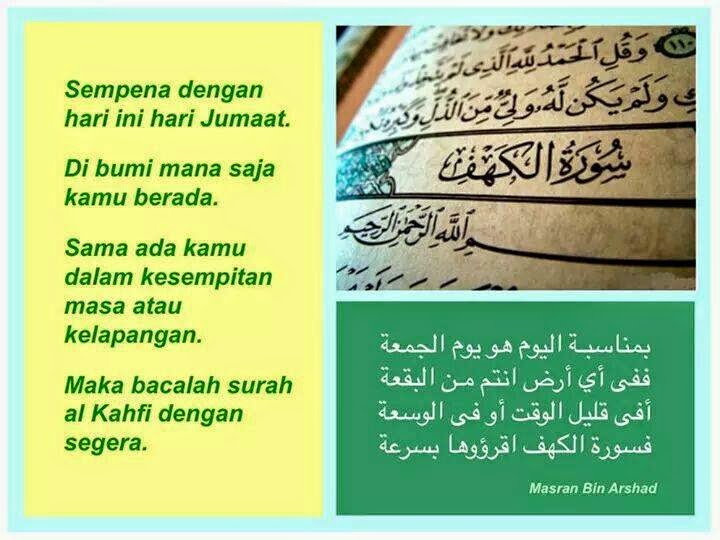 Sempena dengan
hari ini hari Jumaat.
Di bumi mana saja
kamu berada.
Sama ada kamu
dalam kesempitan
masa atau
kelapangan.
Maka bacalah surah
al Kahfi dengan
segera.
١١٠
وَقُلِ الْحَمْدُ لِلَّهِ الَّذِي لَمْ يَتَّخِذْ
وَلَمْ يَكُن لَّهُ وَلِيٌّ مِّنَ الذُّلِّ وَكَبِّرْهُ
سُورَةُ الْكَهْفِ
اللَّهِ الرَّحْمَٰنِ الرَّحِيمِ
بمناسبة اليوم هو يوم الجمعة
ففى أي أرض انتم من البقعة
أفى قليل الوقت أو فى الوسعة
فسورة الكهف اقرؤوها بسرعة
Masran Bin Arshad